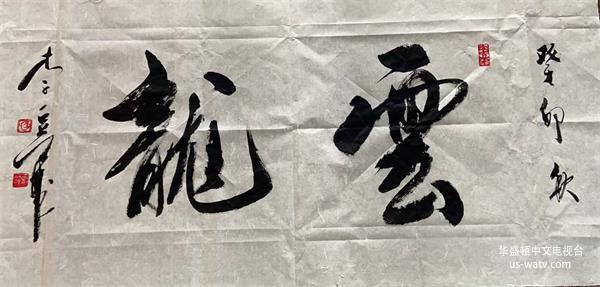 癸卯秋
雲龍
华盛顿中文电视台
us-watv.com